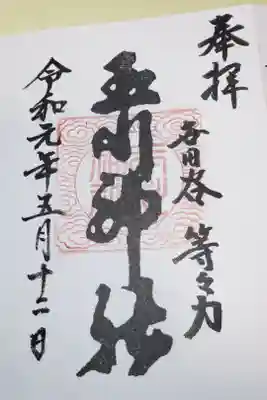 奉拝
世田谷 等々力
玉川神社
令和元年五月十二日